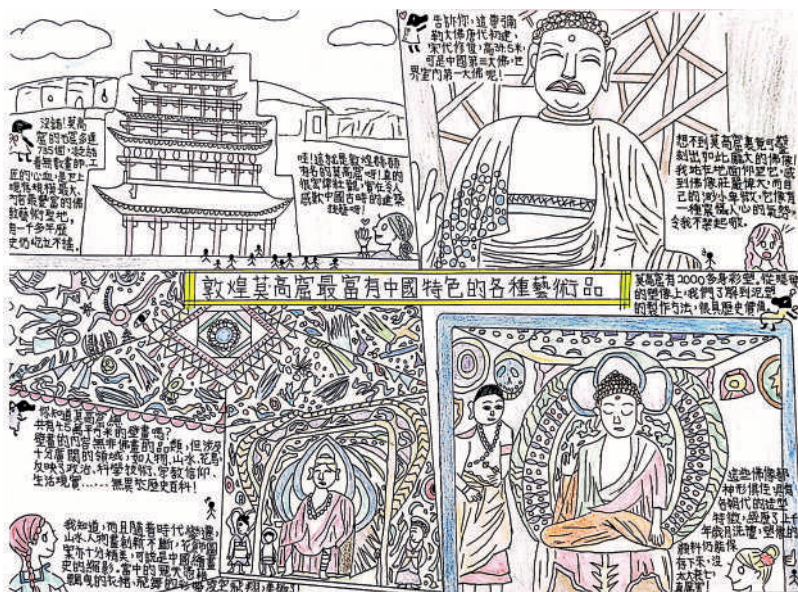 沒錯!莫高
窟的
735個,凝結
着無數畫師、工
匠的心血,是世上
現存規模最大、
內容最豐富的佛
教藝術聖地,
有一千多年歷
史仍屹立不搖。
哇!這就是敦煌縣
有名的莫高窟呀!真的
很宏偉壯觀,實在令人
感歎中國古時的建築
技藝呀!
告訴你,這尊彌
勒大佛唐代初建,
宋代修復,高
可是中國第三大佛,世
界室內第一大佛呢!
想不到莫高窟裏竟可塑
刻出如此龐大的佛像!
我站在地面仰望它,感
到佛像莊嚴偉大,而自
己的渺小卑微,它像有
一種震懾人心的氣勢,
令我不禁起敬。
敦煌莫高窟最富有中國特色的各種藝術品
莫高窟有2000多身彩塑,從
的塑像上,我們了解到泥塑
的製作方法,很具歷史價值。
你知道莫高窟
共有4.5萬平方米的壁畫嗎?
壁畫的內容無非佛畫的品類,但涉及
十分廣闊的領域,如人物、山水、花鳥,
反映了政治、科學技術、宗教信仰、
生活現實……無異於歷史百科!
我知道,而且隨着時代變遷,
山水、人物畫創新不斷,花飾圖
案亦十分精美,可說是中國繪畫
史的縮影。當中的飛天
飄曳的衣裙,飛舞的彩帶
凌空飛翔,
這些佛像都
神形俱佳,具有
各朝代的造型
特徵,經歷了上千
年歲月洗禮,塑像的
顏料仍能保
存下來,沒
太大衰亡,
真厲害!